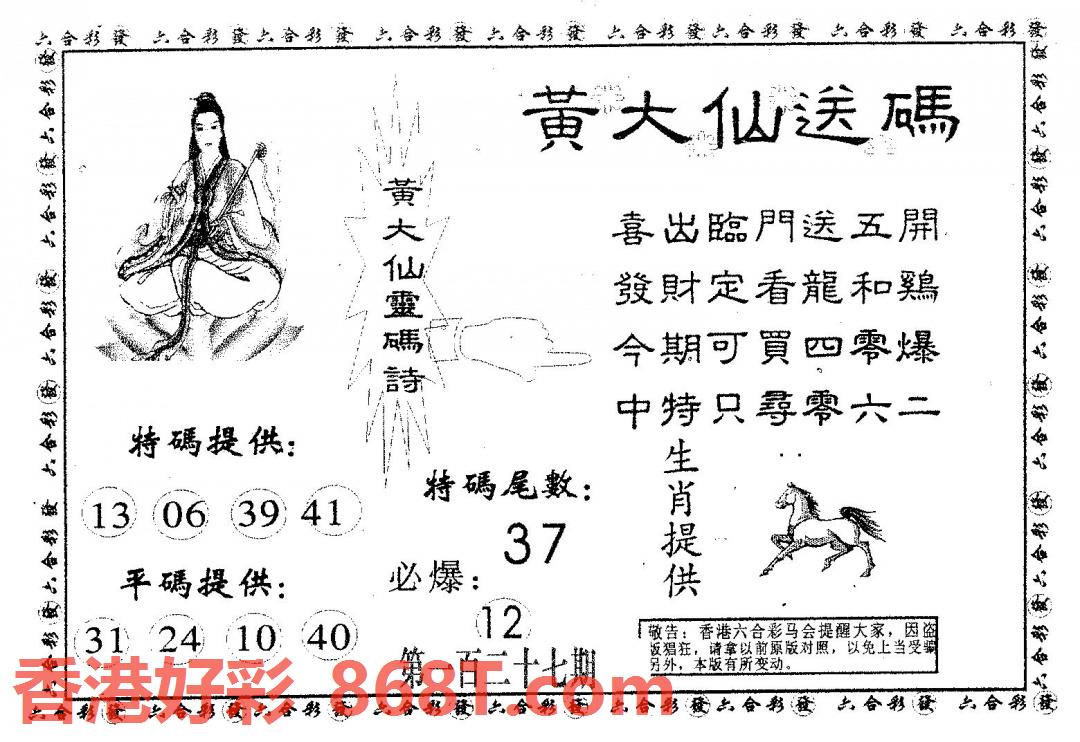 六合彩發 六合彩發六合彩發 六合彩發 六合彩發 六合彩發六合彩發 六合彩發 六合彩發
黃大仙送碼
黃大仙靈碼詩
喜出臨門送五開
發財定看龍和鷄
今期可買四零爆
中特只尋零六二
特碼提供：
13 06 39 41
特碼尾數：
37
生肖提供
平碼提供：
31 24 10 40
必爆：
12
第一百二十七期
敬告：香港六合彩马会提醒大家，因盗
版猖狂，请拿以前原版对照，以免上当受骗
另外，本版有所变动。
香港好彩 868T.com
六合彩發 六合彩發六合彩發 六合彩發 六合彩發 六合彩發六合彩發 六合彩發 六合彩發